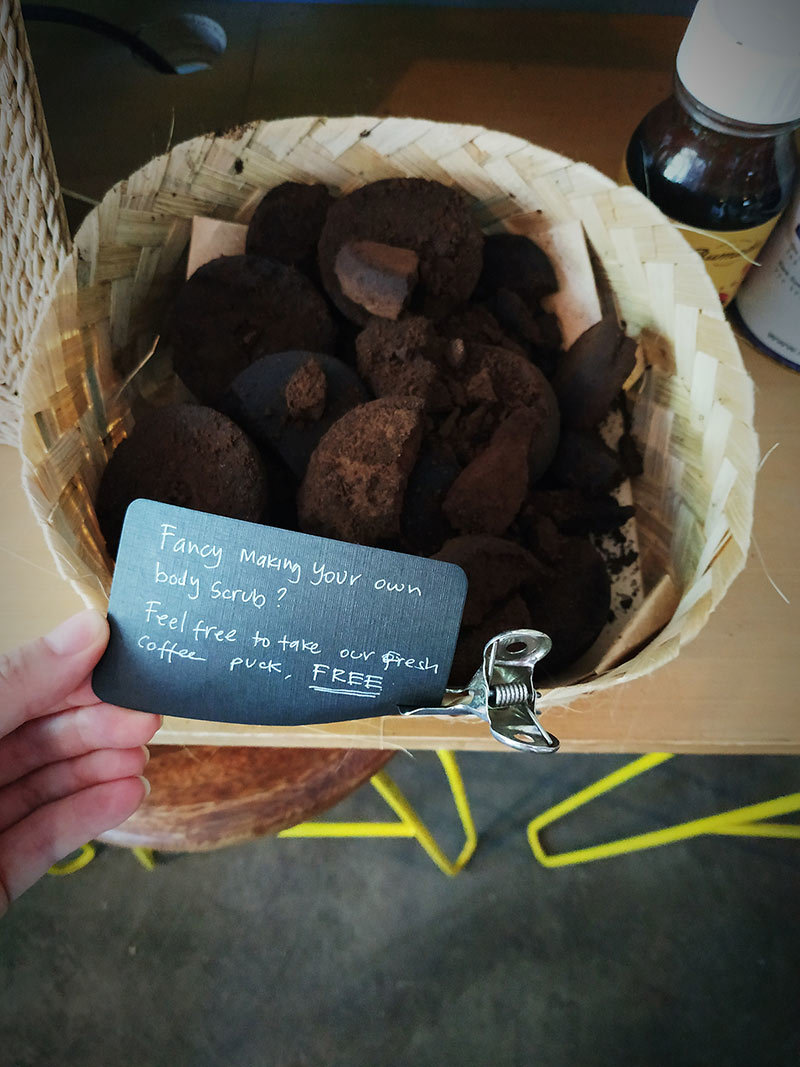 Fancy Making Your own
body scrub?
Feel free to take our fresh
coffee puck, FREE.